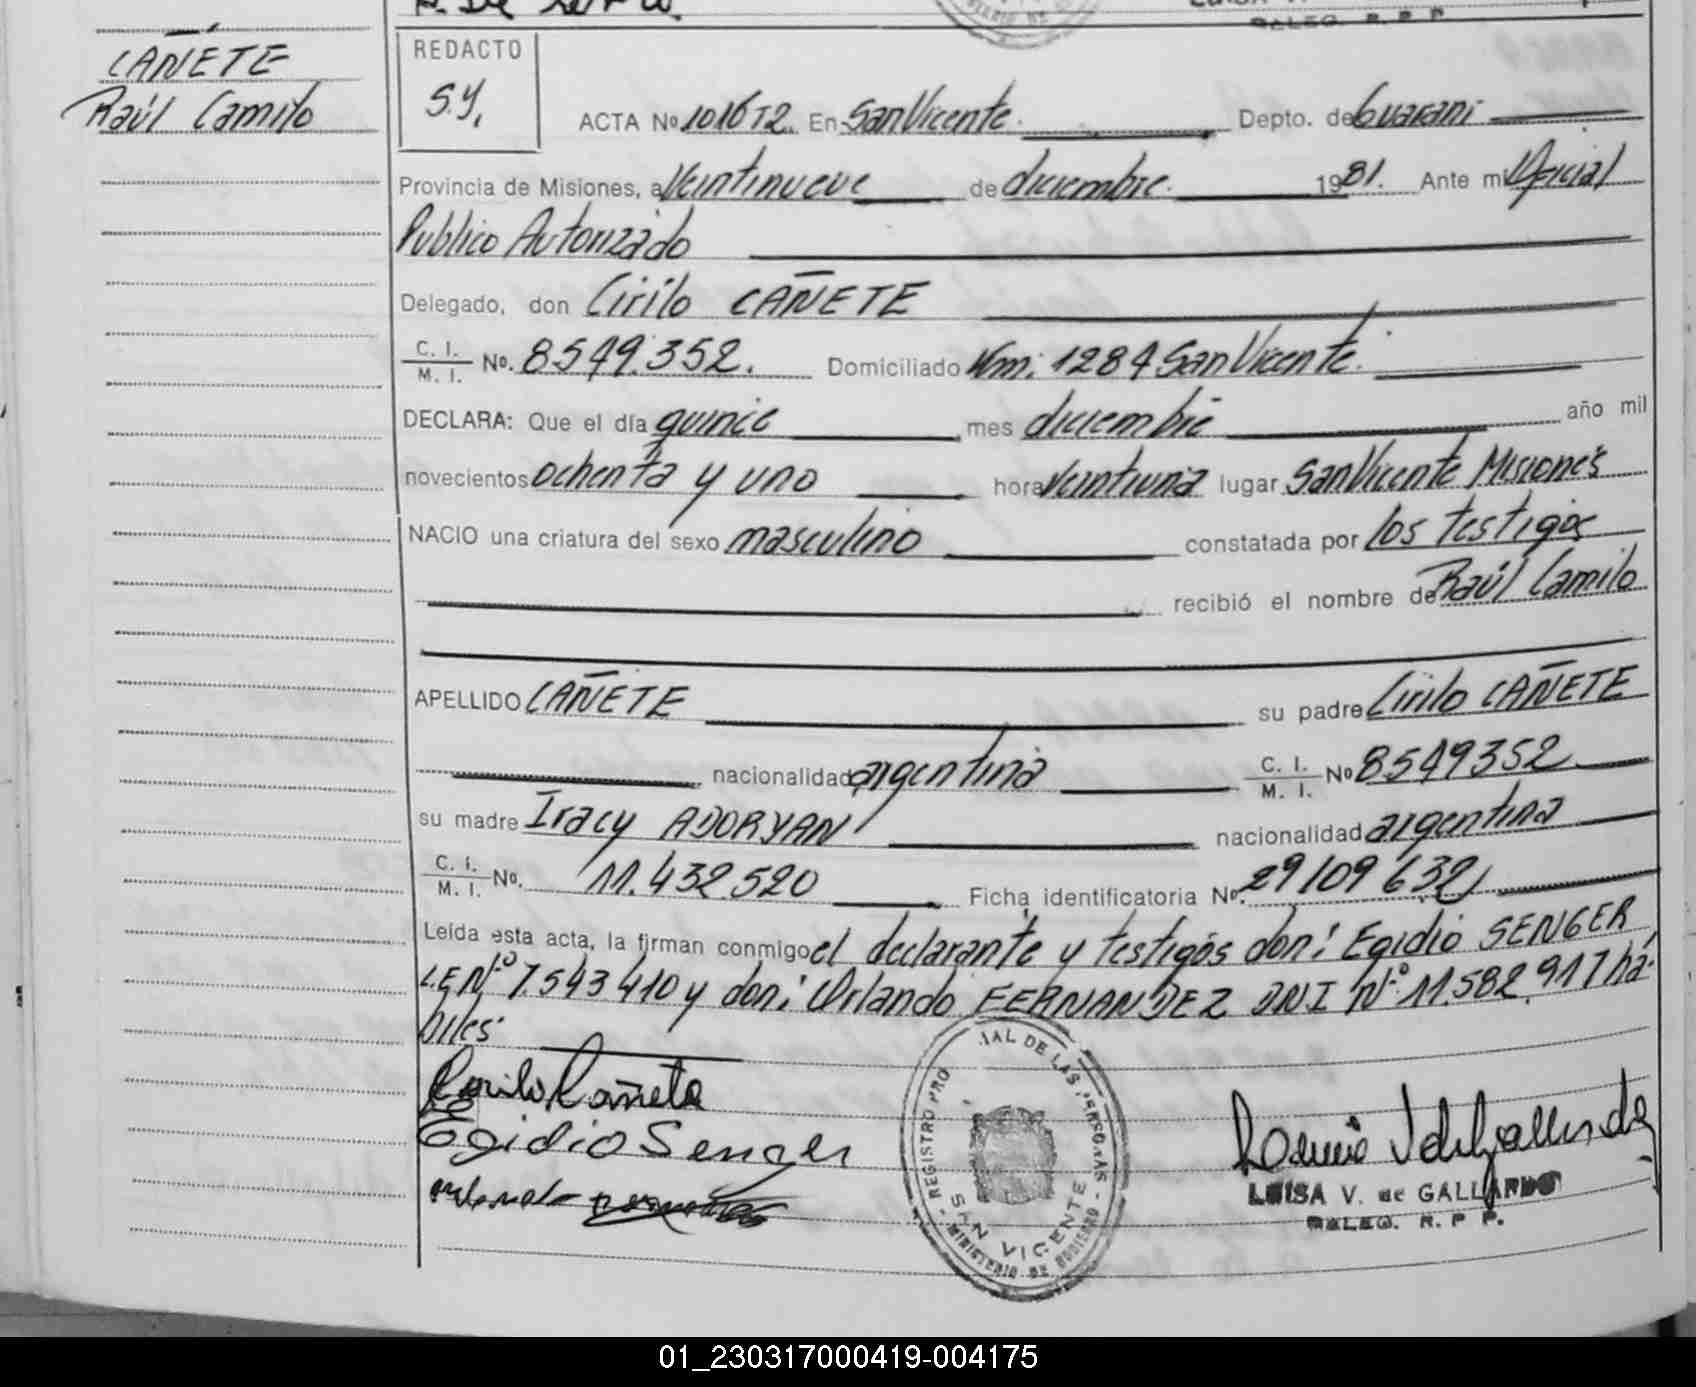 CAÑETE
Raúl Camilo
REDACTO
S.Y.
ACTA No 1016 T2. En San Vicente. Depto. de Guaraní
Provincia de Misiones, a Veintinueve de diciembre. 1981. Ante mi Oficial
Publico Autorizado
Delegado, don Cirilo CAÑETE
C. I. / M. I. No. 8549.352. Domiciliado Km: 1284 San Vicente.
DECLARA: Que el día quince mes diciembre año mil
novecientos ochenta y uno hora veintiuna lugar San Vicente Misiones
NACIO una criatura del sexo masculino constatada por los testigos
recibió el nombre de Raúl Camilo
APELLIDO CAÑETE su padre Cirilo CAÑETE
nacionalidad argentina C. I. / M. I. No 8549352
su madre Iracy ADORYAN nacionalidad argentina
C. I. / M. I. No. 11.432.520 Ficha identificatoria No. 29109632
Leída esta acta, la firman conmigo el declarante y testigos don: Egidio SENGER,
L.E Nº 7.543.410 y don: Orlando FERNANDEZ DNI Nº 11.582.917 há-
biles.
Cirilo Cañete
Egidio Senger
REGISTRO PRO IAL DE LAS PERSONAS
SAN VICENTE
MINISTERIO DE GOBIERNO
LUISA V. de GALLARDO
DELEG. R. P. P.
01_230317000419-004175